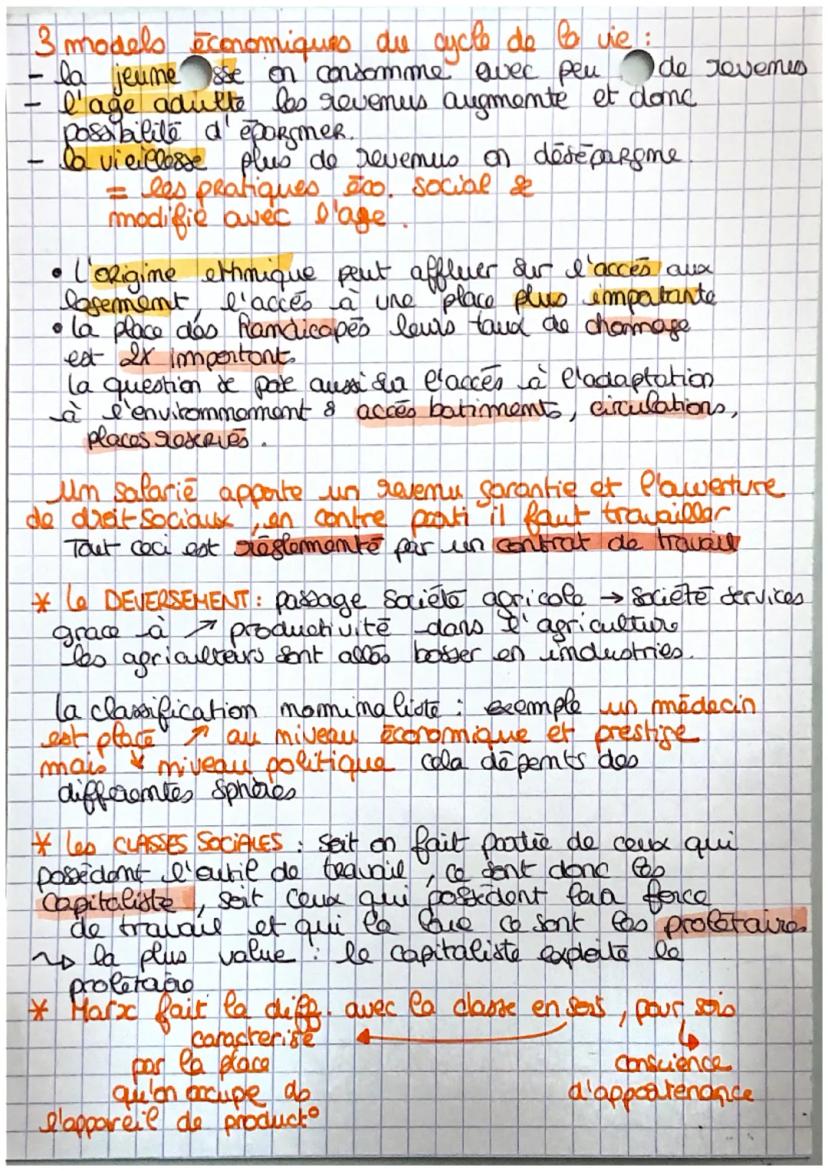 3 models économiques du cycle de la vie :
- la jeune sse on consomme avec peu de revenus
- l'age adulte les revenus augmente et donc
possibilité d'épargner.
- la vieillesse plus de revenus on désépargne.
= les pratiques éco. social se
modifie avec l'age.
• L'origine ethnique peut affluer sur l'accès aux
logement, l'accès à une place plus impotante
• la place des handicapés leurs taux de chomage
est 2x important.
la question se pose aussi sur l'accès à l'adaptation
à l'environnement : accès batiments, circulations,
places reservés.
Un salarié apporte un revenu garantie et l'ouverture
de droit sociaux, en contre parti il faut travailler
Tout ceci est réglementé par un contrat de travail
* le DEVERSEMENT : passage société agricole → société services
grace à ↗ productivité dans l'agriculture
les agriculteurs sont allés bosser en industries.
la classification nominaliste : exemple un médecin
est placé ↗ au niveau économique et prestige
mais ↘ niveau politique cela dépents des
differentes sphères
* les CLASSES SOCIALES : soit on fait partie de ceux qui
possèdent l'outil de travail, ce sont donc les
capitaliste, soit ceux qui possèdent force
de travail et qui la loue ce sont les prolétaires
↝ la plus value : le capitaliste exploite le
prolétaire
* Marx fait la diff. avec la classe en sois, pour sois
caracterisé
par la place
qu'on occupe ds
l'appareil de product°
conscience
d'appartenance